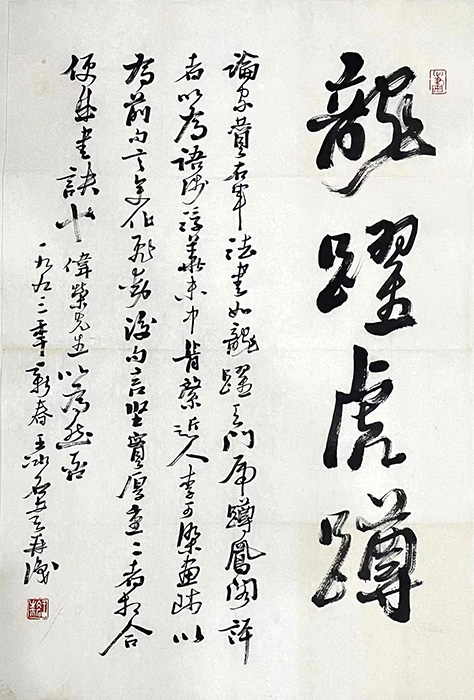 龍躍虎蹲
論家贊右軍法書如龍躍天門虎蹲鳳閣評
者以為語涉浮華未中肯綮近人李可染畫師以
為前句言變化飛動後句言堅實厚重二者相合
便成書訣也偉榮先生以為然否
一九九三年新春王冰石再識